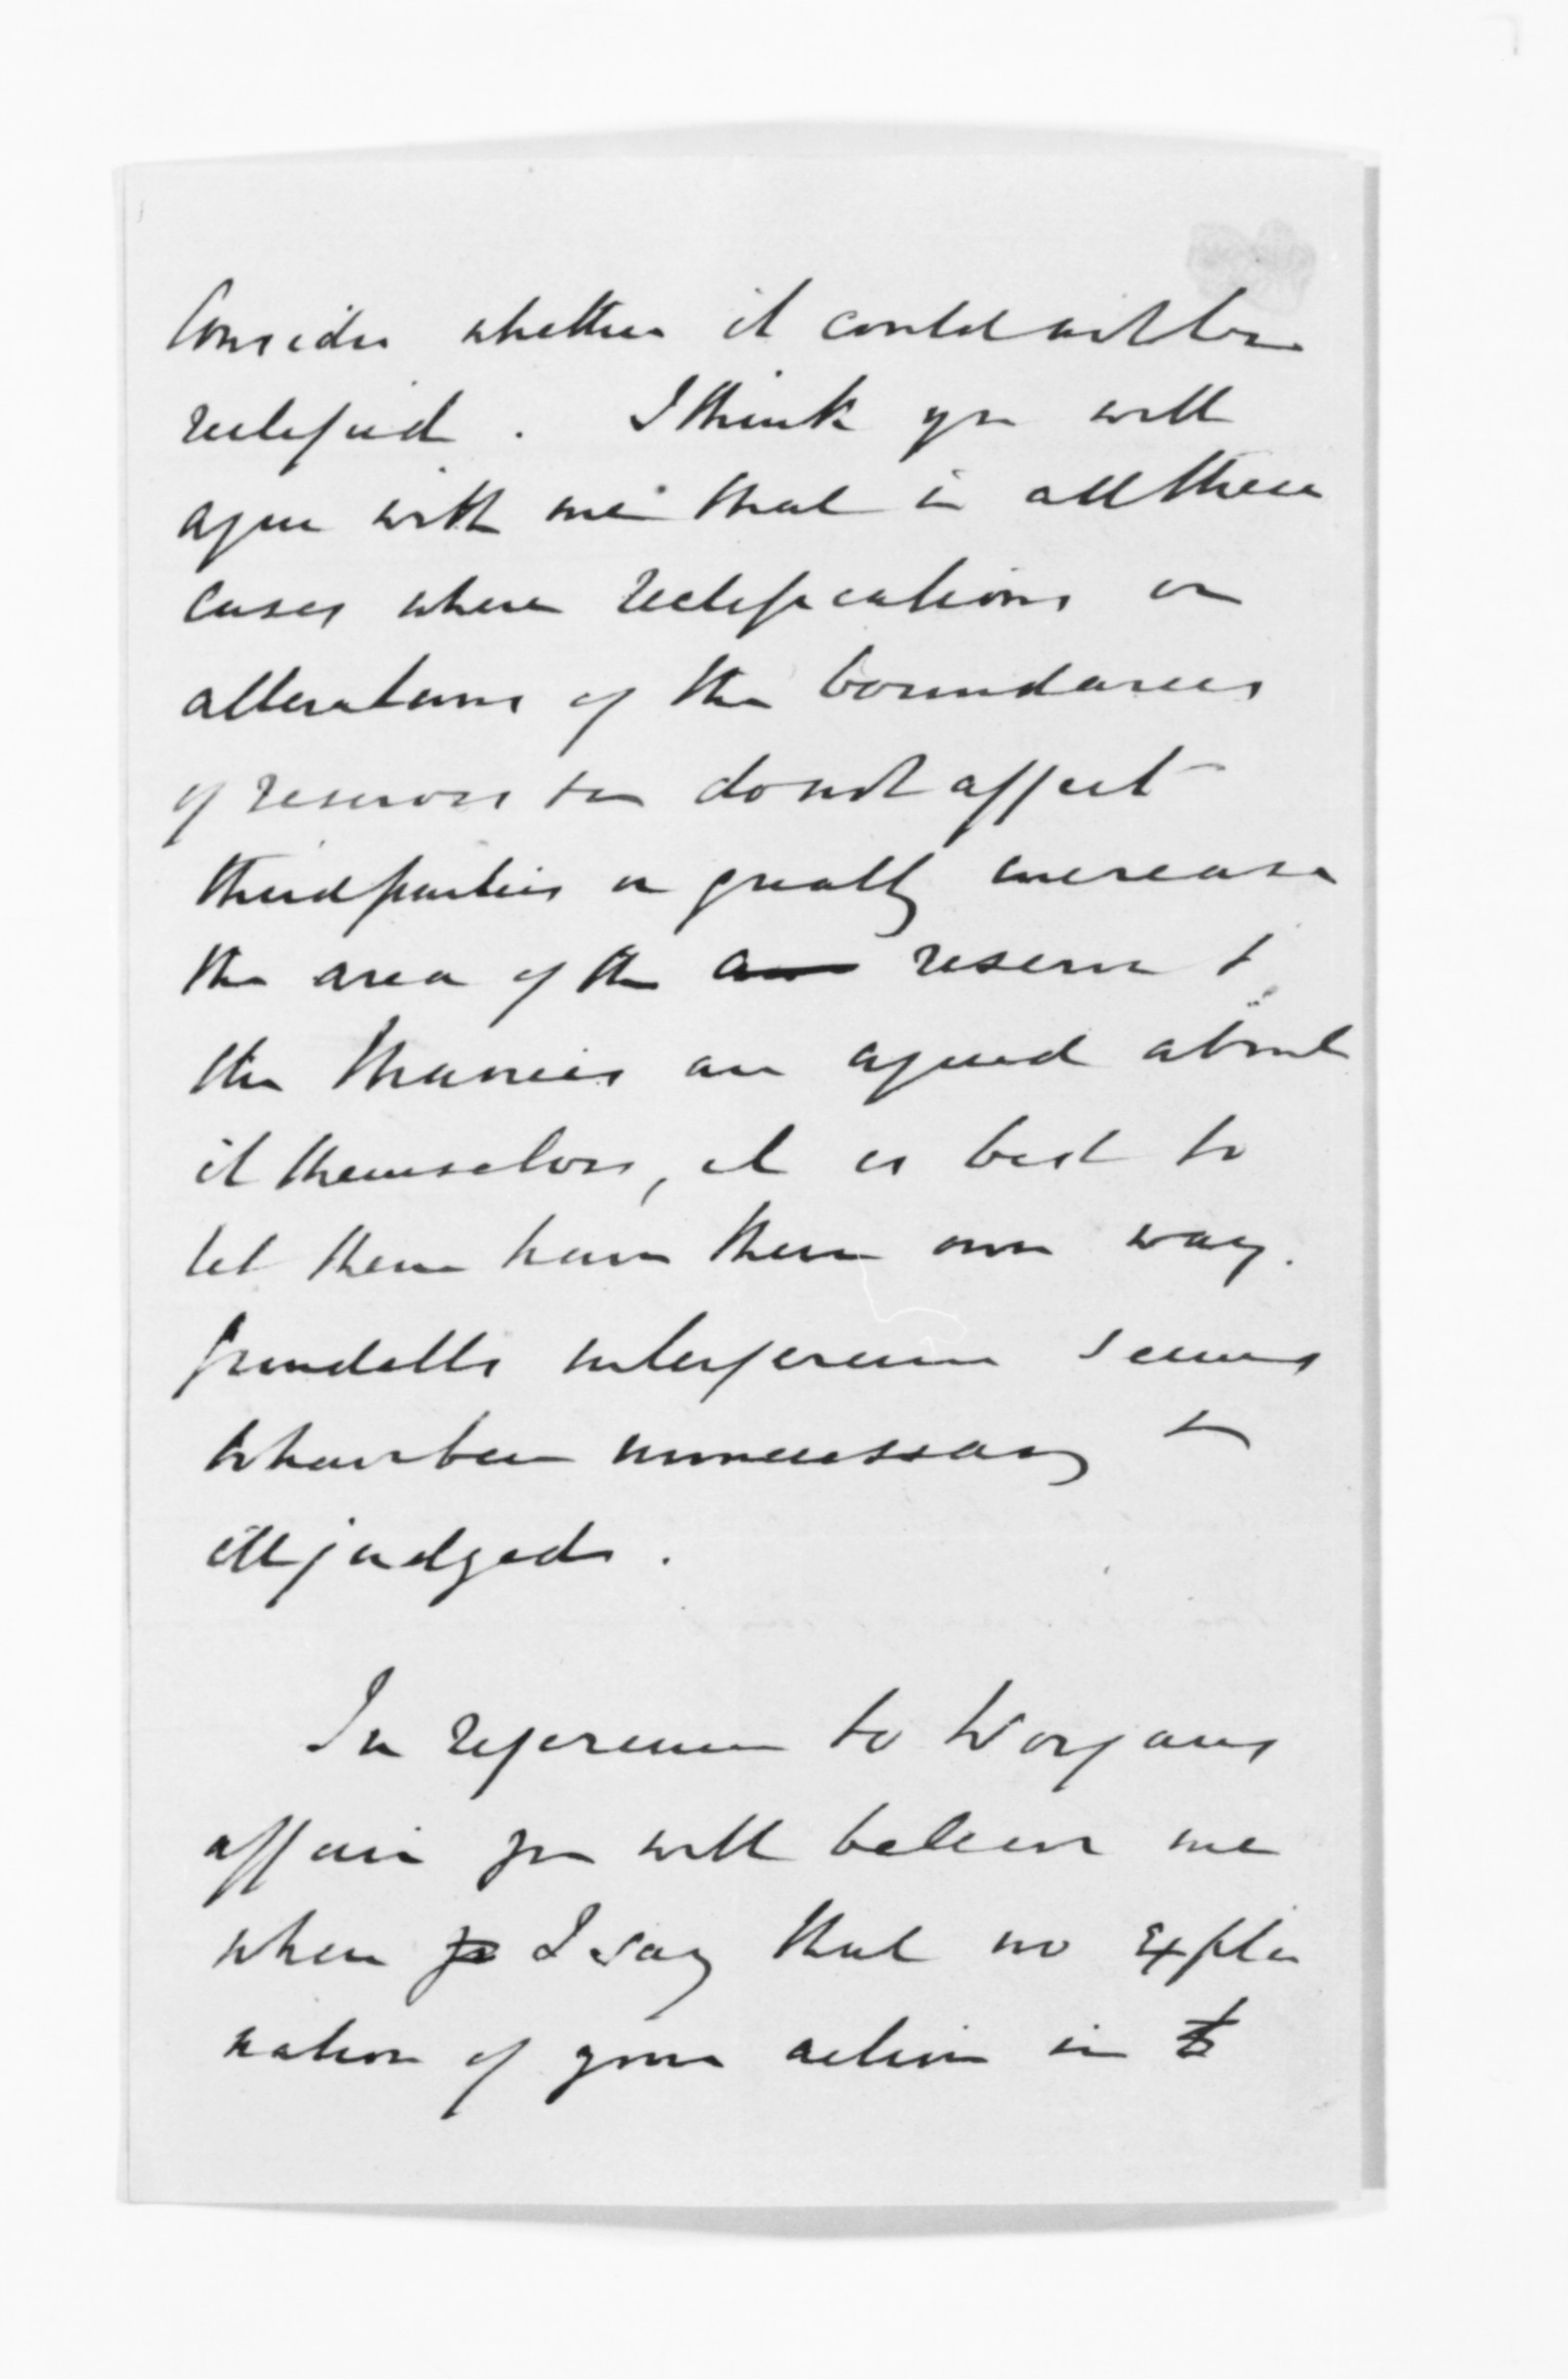 Consider whether it could not be
rectified. I think you will
agree with me that in all these
cases where rectifications or
alterations of the boundaries
of reserves &c do not affect
third parties or greatly increase
the area of the reserve &
the Maories are agreed about
it themselves, it is best to
let them have their own way.
interference seems
to have been unnecessary &
ill judged.
In reference to Worgans
affair you will believe me
when I say that no expla
nation of your action in